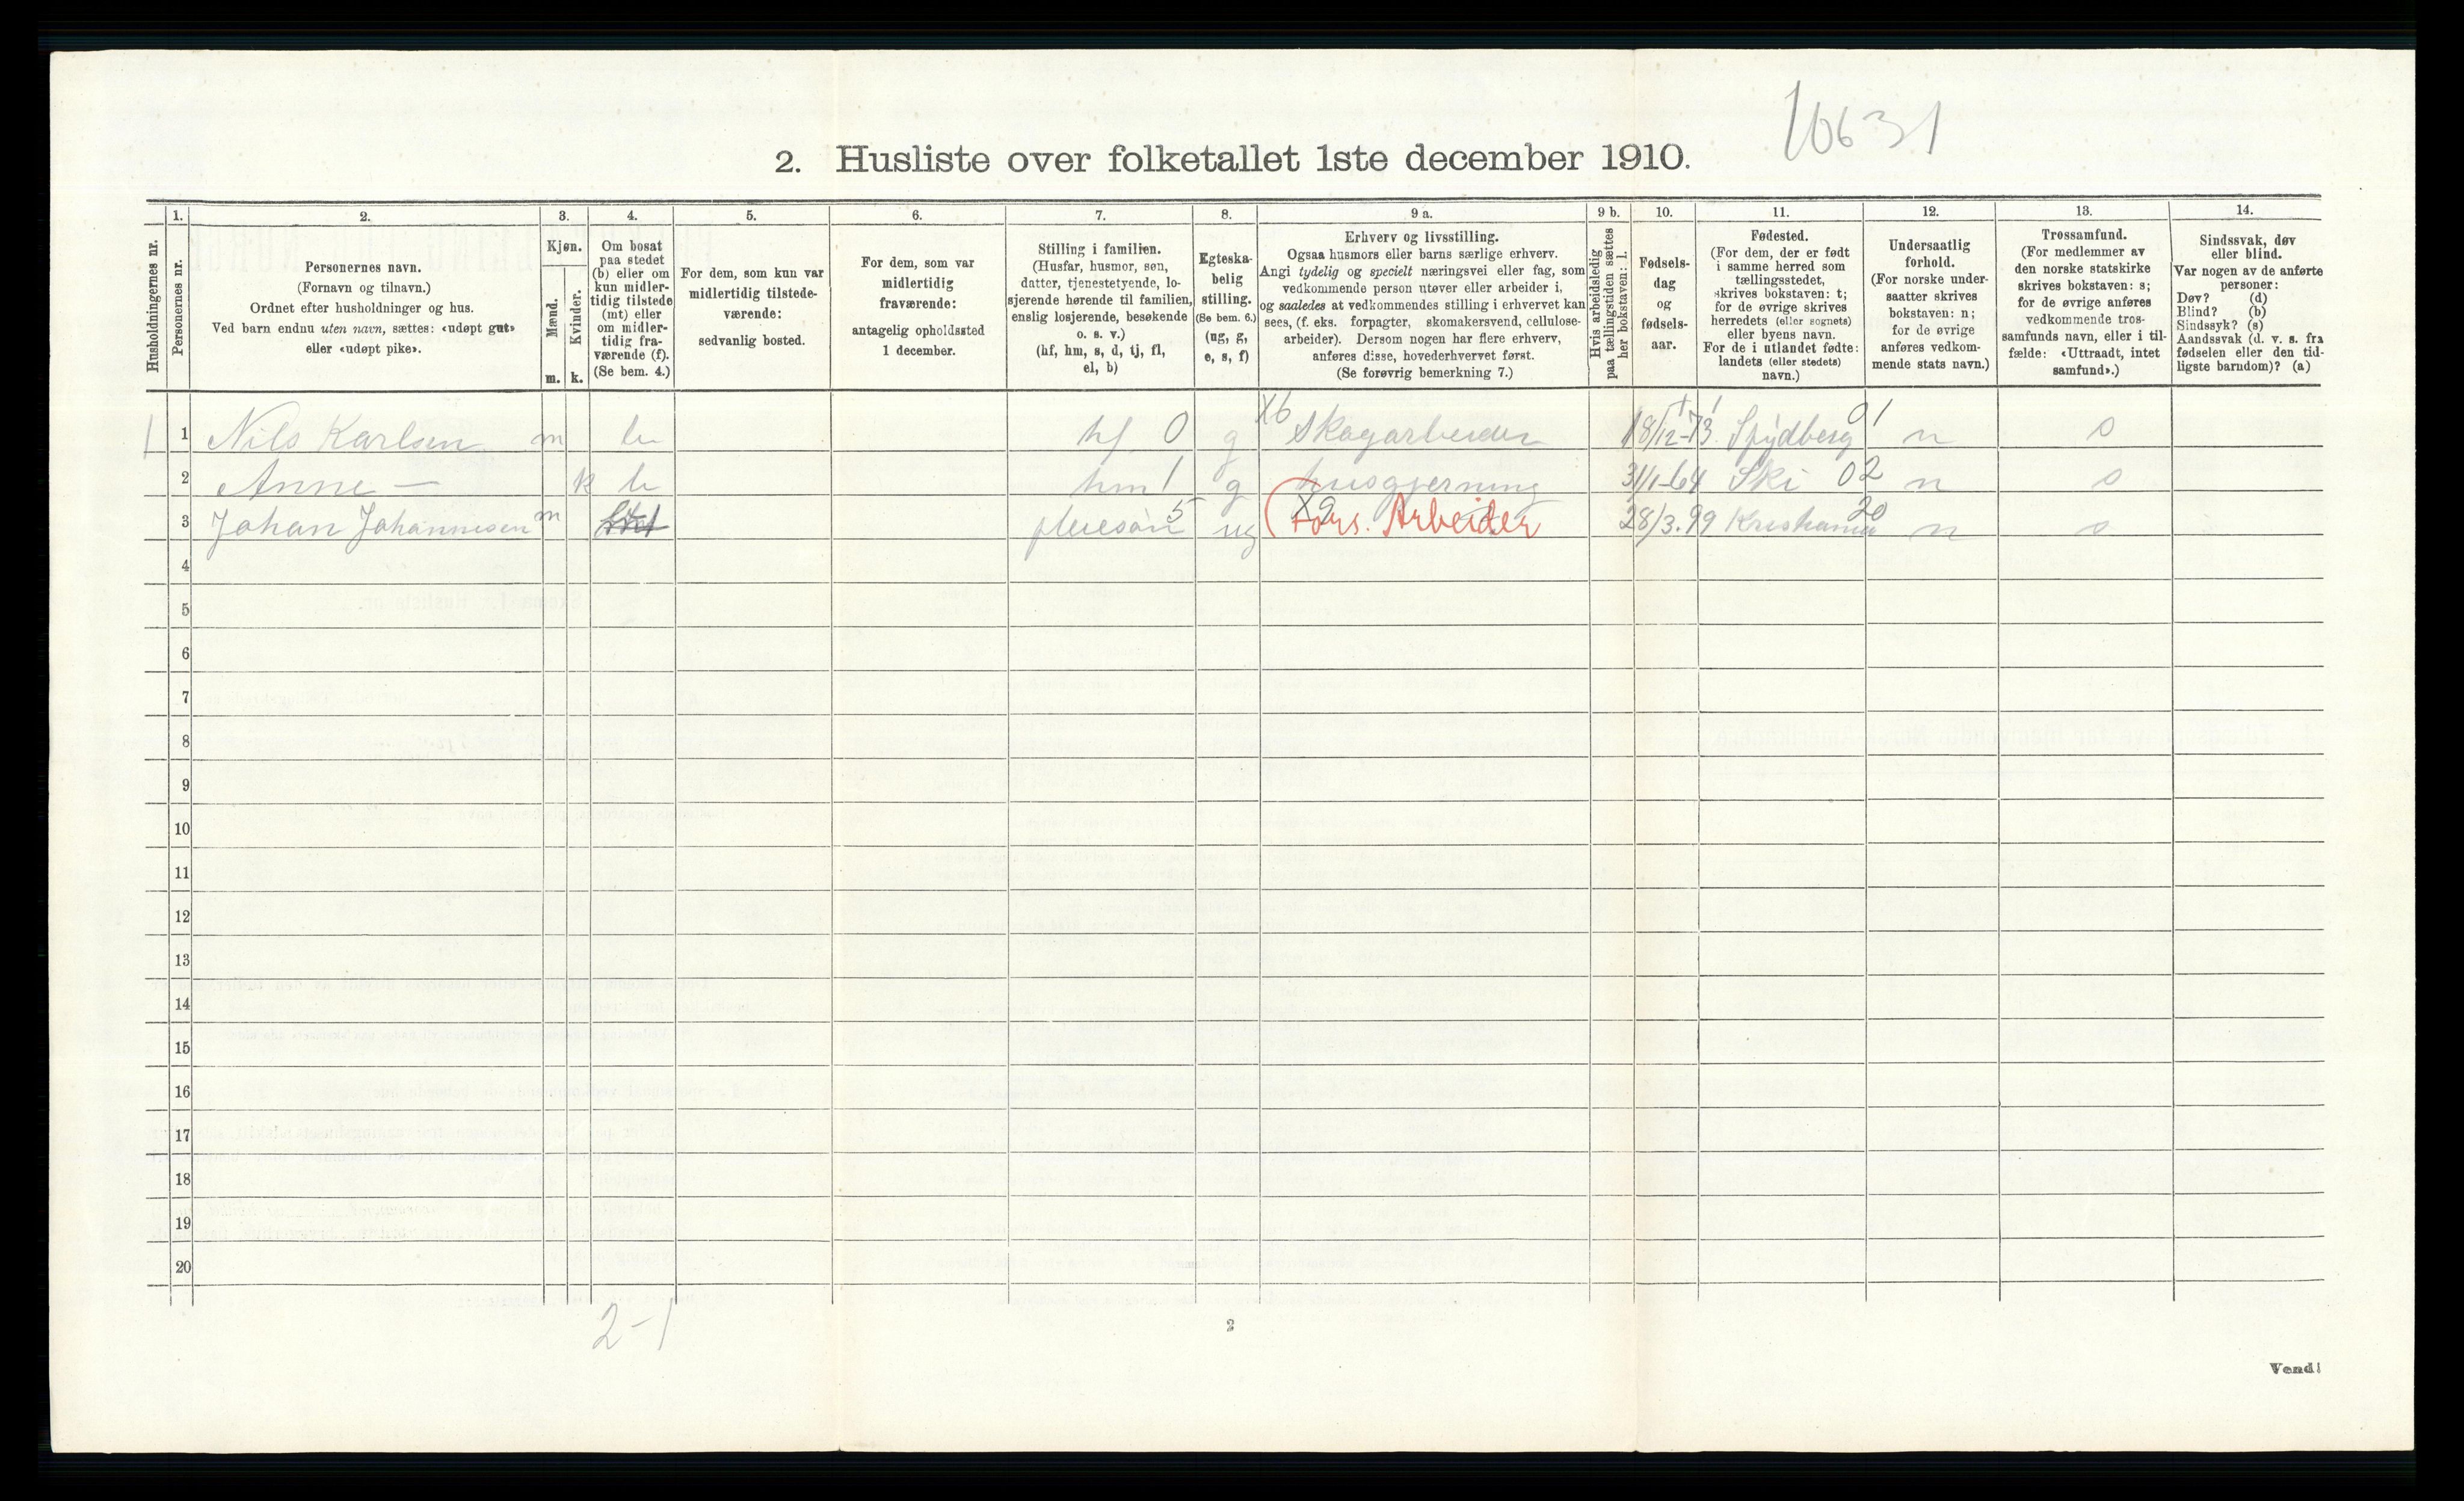 10631
2. Husliste over folketallet 1ste december 1910.
1. 2. 3. 4. 5. 6. 7. 8. 9 a. 9 b. 10. 11. 12. 13. 14.
Husholdningernes nr.
Personernes nr.
Personernes navn.
(Fornavn og tilnavn.)
Ordnet efter husholdninger og hus.
Ved barn endnu uten navn, sættes: «udøpt gut»
eller «udøpt pike».
Kjøn.
Mænd.
Kvinder.
m. k.
Om bosat
paa stedet
(b) eller om
kun midler-
tidig tilstede
(mt) eller
om midler-
tidig fra-
værende (f).
(Se bem. 4.)
For dem, som kun var
midlertidig tilstede-
værende:
sedvanlig bosted.
For dem, som var
midlertidig
fraværende:
antagelig opholdssted
1 december.
Stilling i familien.
(Husfar, husmor, søn,
datter, tjenestetyende, lo-
sjerende hørende til familien,
enslig losjerende, besøkende
o. s. v.)
(hf, hm, s, d, tj, fl,
el, b)
Egteska-
belig
stilling.
(Se bem. 6.)
(ug, g,
e, s, f)
Erhverv og livsstilling.
Ogsaa husmors eller barns særlige erhverv.
Angi tydelig og specielt næringsvei eller fag, som
vedkommende person utøver eller arbeider i,
og saaledes at vedkommendes stilling i erhvervet kan
sees, (f. eks. forpagter, skomakersvend, cellulose-
arbeider). Dersom nogen har flere erhverv,
anføres disse, hovederhvervet først.
(Se forøvrig bemerkning 7.)
Hvis arbeidsledig
paa tællingstiden sættes
her bokstaven: l.
Fødsels-
dag
og
fødsels-
aar.
Fødested.
(For dem, der er født
i samme herred som
tællingsstedet,
skrives bokstaven: t;
for de øvrige skrives
herredets (eller sognets)
eller byens navn.
For de i utlandet fødte:
landets (eller stedets)
navn.)
Undersaatlig
forhold.
(For norske under-
saatter skrives
bokstaven: n;
for de øvrige
anføres vedkom-
mende stats navn.)
Trossamfund.
(For medlemmer av
den norske statskirke
skrives bokstaven: s;
for de øvrige anføres
vedkommende tros-
samfunds navn, eller i til-
fælde: «Uttraadt, intet
samfund».)
Sindssvak, døv
eller blind.
Var nogen av de anførte
personer:
Døv? (d)
Blind? (b)
Sindssyk? (s)
Aandssvak (d. v. s. fra
fødselen eller den tid-
ligste barndom)? (a)
1 1 Nils Karlsen m b hf 0 g X6 Skogarbeider 18/12-73 Spydberg 01 n s
2 Anne — k b hm 1 g husgjerning 31/1-64 Ski 02 n s
3 Johan Johannesen m pleiesøn 5 ug X9 (Fors. Arbeider 28/3.99 Kristiania 20 n s
4
5
6
7
8
9
10
11
12
13
14
15
16
17
18
19
20
2-1
2
Vend!